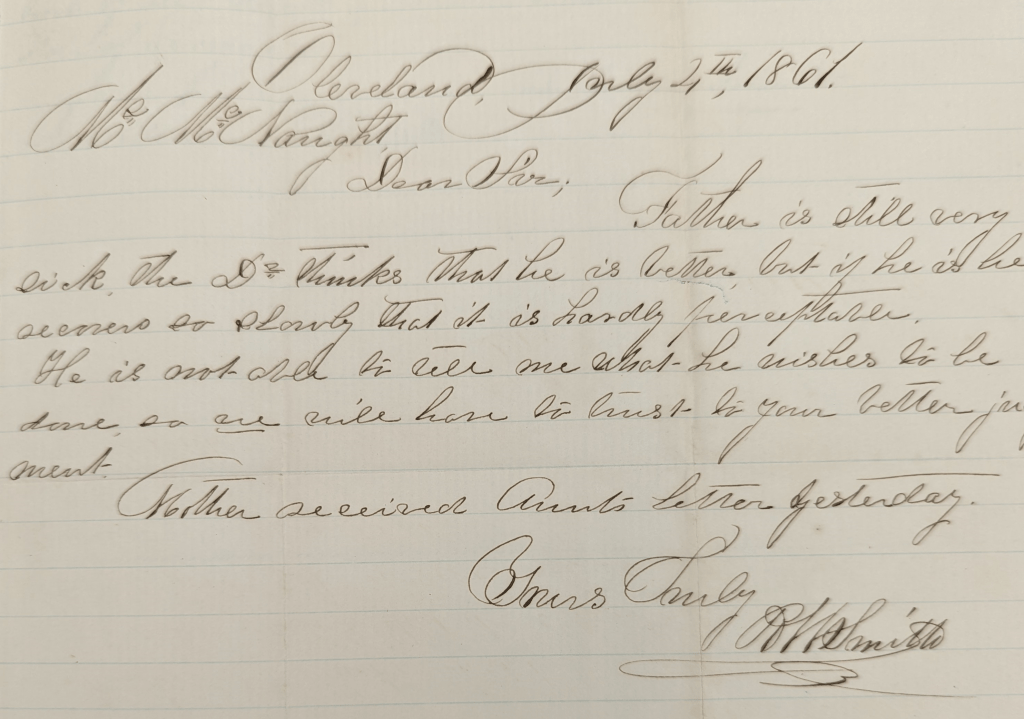 Cleveland, July 4th, 1861.
Mr. McNaught,
Dear Sir;
Father is still very
sick, the Dr thinks that he is better, but if he is he
recovers so slowly that it is hardly perceptable.
He is not able to tell me what he wishes to be
done, so we will have to trust to your better ju
ment.
Mother received Aunts letter yesterday.
Yours Truly
R W Smith